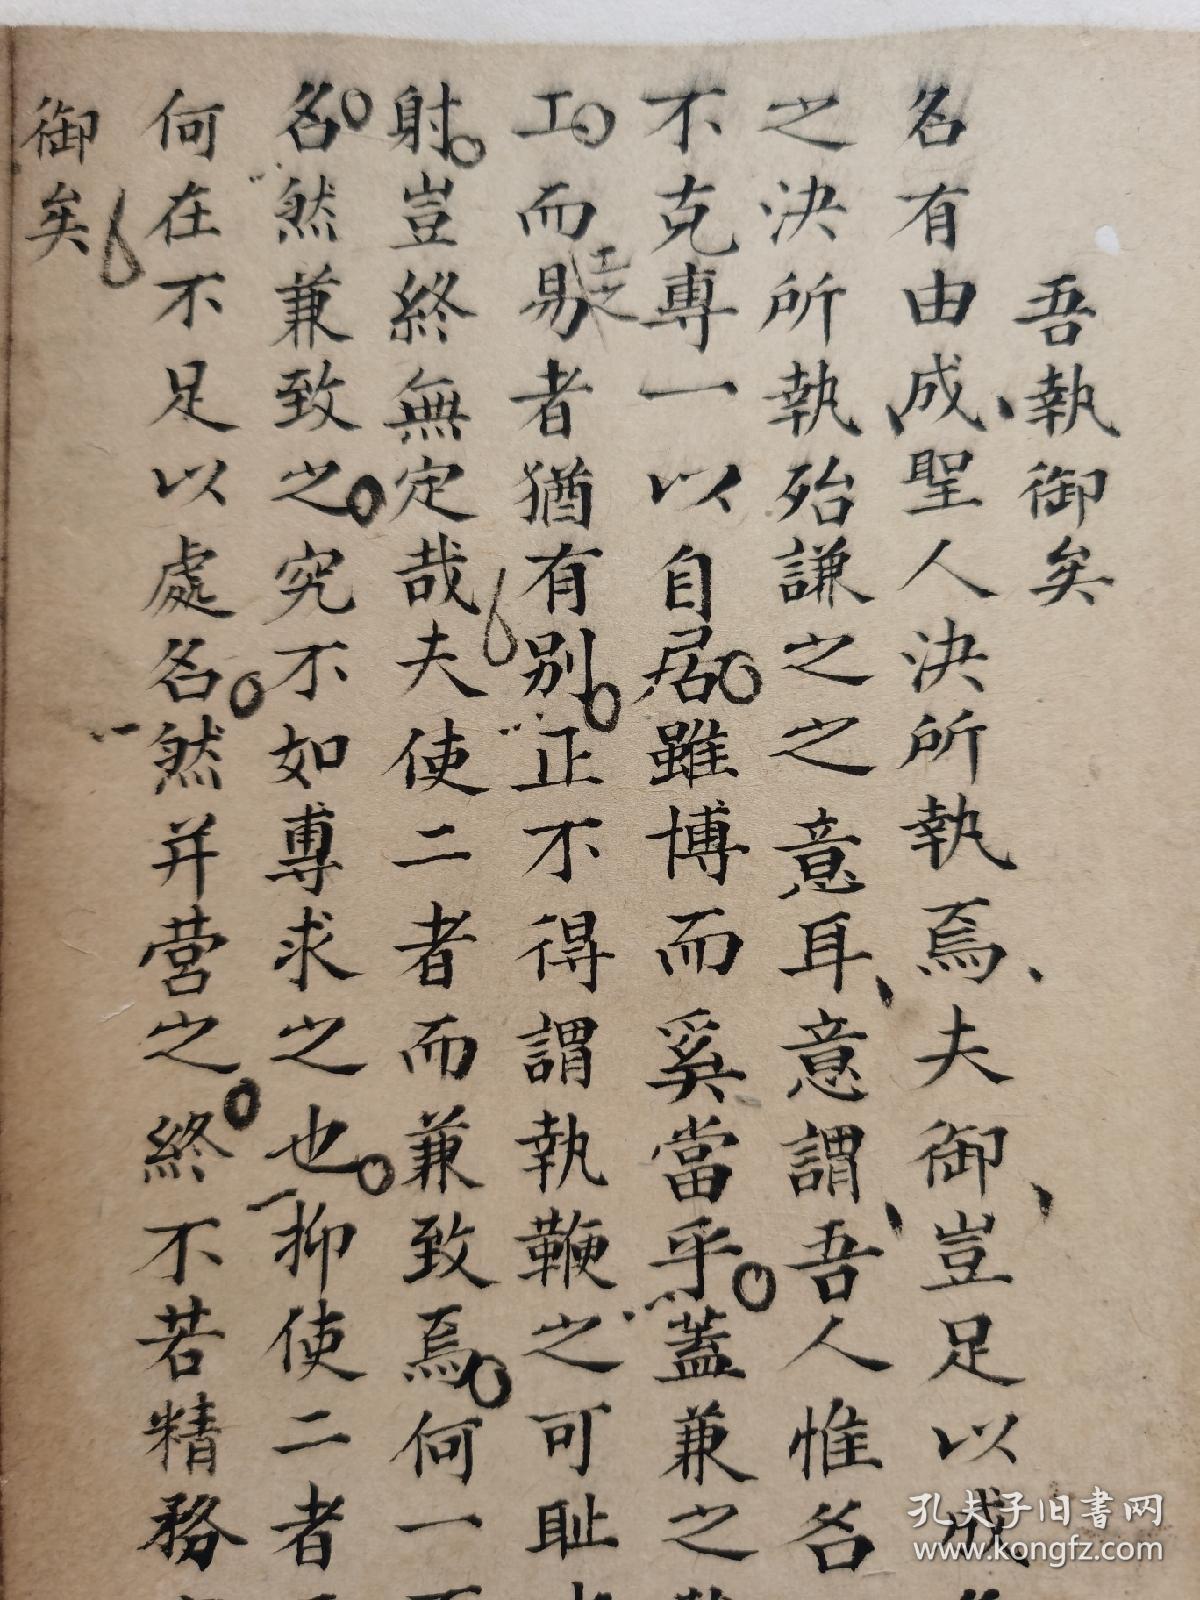 吾執御矣
名有由成聖人決所執焉夫御豈足以成
之決所執殆謙之之意耳意謂吾人惟名
不克專一以自居雖博而奚當乎蓋兼之
工而易者猶有別正不得謂執鞭之可耻
工之
射豈終無定哉夫使二者而兼致焉何一
名然兼致之究不如專求之也抑使二者
何在不足以處名然并营之終不若精務
御矣
孔夫子旧書网
www.kongfz.com